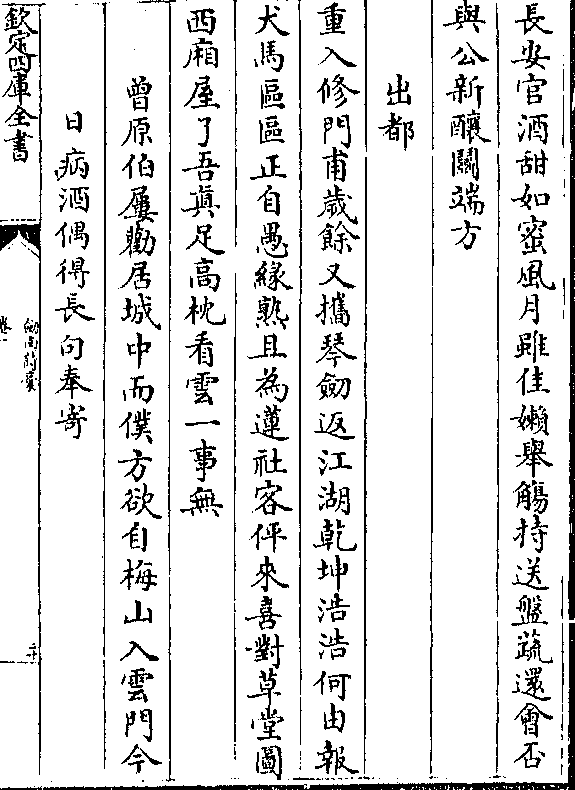 長安官酒甜如蜜風月雖佳嬾舉觴持送盤蔬還㑹否
與公新釀鬭端方
出都
重入修門甫歲餘又攜琴劒返江湖乾坤浩浩何由報
犬馬區區正自愚緣熟且為蓮社客伻來喜對草堂圖
西廂屋了吾真足髙枕看雲一事無
曽原伯屢勸居城中而僕方欲自梅山入雲門今
日病酒偶得長句奉寄
欽定四庫全書
劒南詩藁
卷一
二十